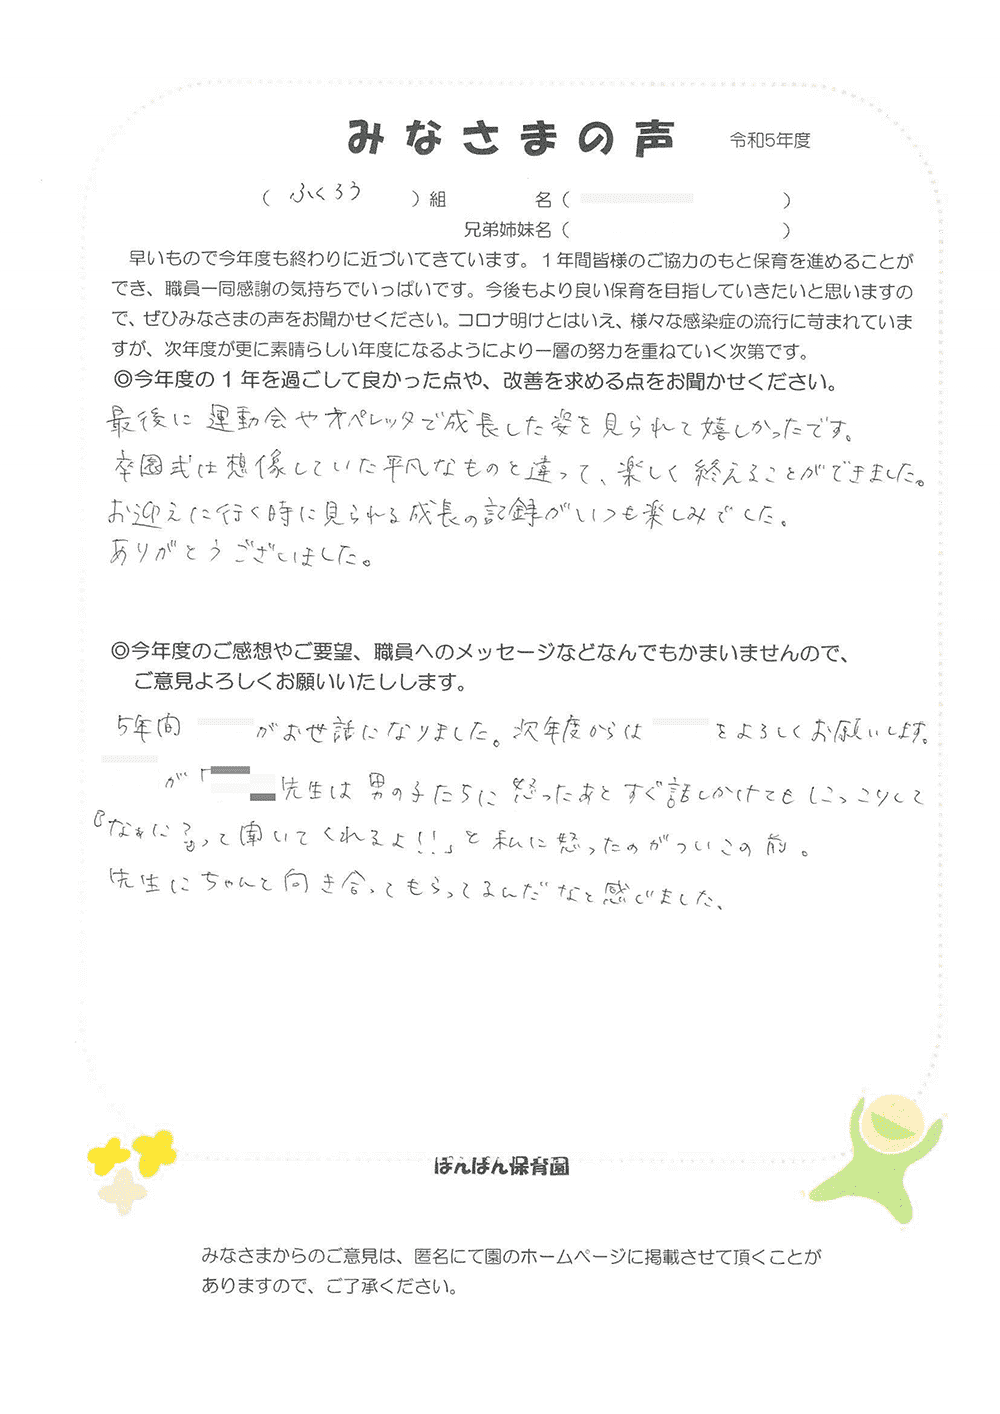 みなさまの声 令和5年度
（ ふくろう ）組 名（ ）
兄弟姉妹名（ ）
早いもので今年度も終わりに近づいてきています。１年間皆様のご協力のもと保育を進めることが
でき、職員一同感謝の気持ちでいっぱいです。今後もより良い保育を目指していきたいと思いますの
で、ぜひみなさまの声をお聞かせください。コロナ明けとはいえ、様々な感染症の流行に苛まれていま
すが、次年度が更に素晴らしい年度になるようにより一層の努力を重ねていく次第です。
◎今年度の１年を過ごして良かった点や、改善を求める点をお聞かせください。
最後に運動会やオペレッタで成長した姿を見られて嬉しかったです。
卒園式は想像していた平凡なものと違って、楽しく終えることができました。
お迎えに行く時に見られる成長の記録がいつも楽しみでした。
ありがとうございました。
◎今年度のご感想やご要望、職員へのメッセージなどなんでもかまいませんので、
ご意見よろしくお願いいたしします。
5年間 がお世話になりました。次年度からは をよろしくお願いします。
が「 先生は男の子たちに怒ったあとすぐ話しかけてもにっこりして
『なぁに？』って聞いてくれるよ!!」と私に怒ったのがついこの前。
先生にちゃんと向き合ってもらってるんだなと感じました、
ぽんぽん保育園
みなさまからのご意見は、匿名にて園のホームページに掲載させて頂くことが
ありますので、ご了承ください。